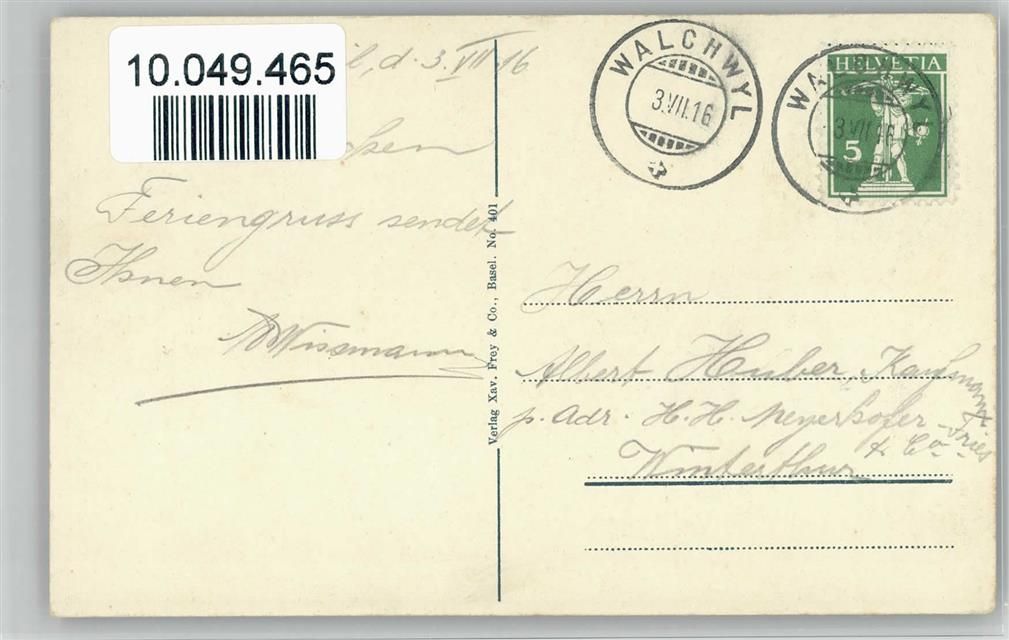 10.049.465
d. 3. VII. 16
Feriengruss sendet
Ihnen
Wissmann
Verlag Xav. Frey & Co., Basel. No. 401
WALCHWYL
3.VII.16
WALCHWYL
3.VII.16
HELVETIA
5
Herrn
Albert Huber, Kaufmann
p. Adr. H.H. Meyerhofer-Fries
& Co.
Winterthur